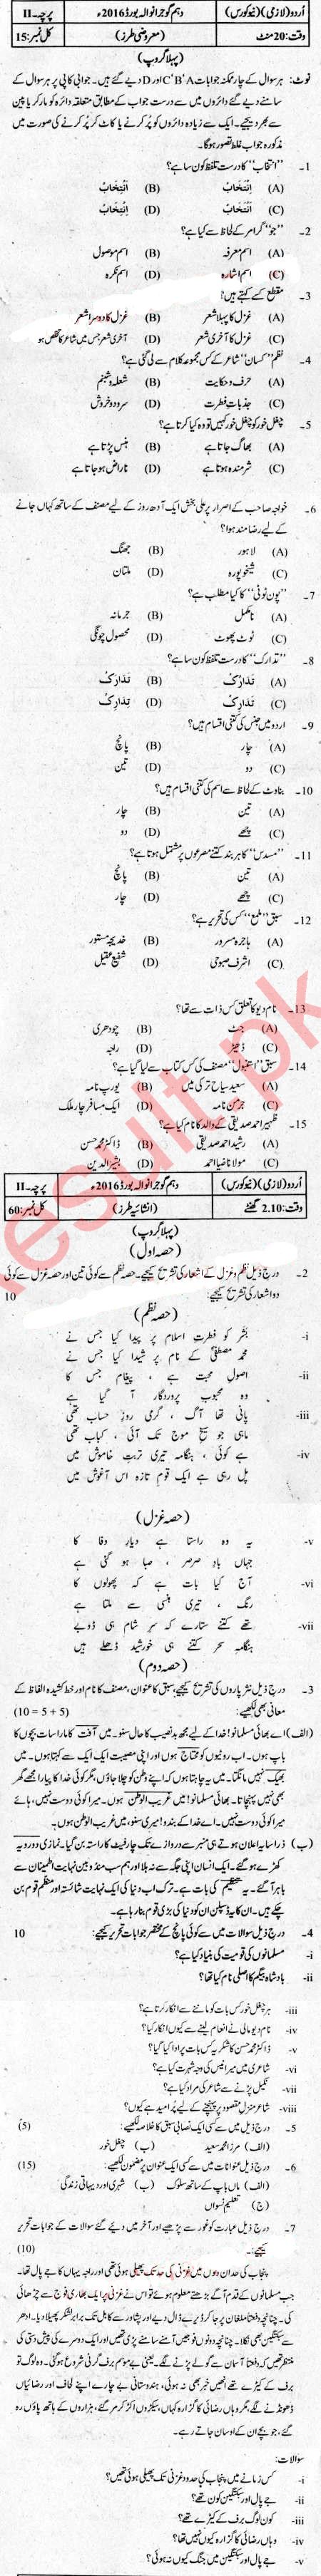 اُردو (لازمی) (نیو کورس) دہم گوجرانوالہ بورڈ 2016ء پرچہ۔II
وقت: 20 منٹ (معروضی طرز) کل نمبر: 15
(پہلا گروپ)
نوٹ: ہر سوال کے چار ممکنہ جوابات A'B'C اور D دیے گئے ہیں۔ جوابی کاپی پر ہر سوال کے
سامنے دیے گئے دائروں میں سے درست جواب کے مطابق متعلقہ دائرہ کو مارکر یا پین
سے بھر دیجیے۔ ایک سے زیادہ دائروں کو پُر کرنے یا کاٹ کر پُر کرنے کی صورت میں
مذکورہ جواب غلط تصور ہوگا۔
1۔ ''انتخاب'' کا درست تلفظ کون سا ہے؟
(A) (B)
(C) (D)
2۔ ''جو'' گرامر کے لحاظ سے کیا ہے؟
(A) اسم معرفہ (B) اسم موصول
(C) اسم اشارہ (D) اسم نکرہ
3۔ مقطع کسے کہتے ہیں؟
(A) غزل کا پہلا شعر (B) غزل کا دوسرا شعر
(C) غزل کا آخری شعر (D) آخری شعر جس میں شاعر کا تخلص ہو
4۔ نظم ''کسان'' شاعر کے کس مجموعہ کلام سے لی گئی ہے؟
(A) حرف و حکایت (B) شعلہ و شبنم
(C) جذباتِ فطرت (D) سرود و خروش
5۔ چغل خور کو چغل خور کہیں تو وہ کیا کرتا ہے؟
(A) بھاگ جاتا ہے (B) ہنس پڑتا ہے
(C) شرمندہ ہوتا ہے (D) ناراض ہو جاتا ہے
6۔ خواجہ صاحب کے اصرار پر علی بخش ایک آدھ روز کے لیے مصنف کے ساتھ کہاں جانے
کے لیے رضا مند ہوا؟
(A) لاہور (B) جھنگ
(C) شیخوپورہ (D) ملتان
7۔ ''پون ٹوٹی'' کا کیا مطلب ہے؟
(A) نامکمل (B) جرمانہ
(C) ٹوٹ پھوٹ (D) محصول چونگی
8۔ ''تدارک'' کا درست تلفظ کون سا ہے؟
(A) (B)
(C) (D)
9۔ اردو میں جنس کی کتنی اقسام ہیں؟
(A) چار (B) پانچ
(C) دو (D) تین
10۔ بناوٹ کے لحاظ سے اسم کی کتنی اقسام ہیں؟
(A) تین (B) چار
(C) چھے (D) دو
11۔ ''مسدس'' کا ہر بند کتنے مصرعوں پر مشتمل ہوتا ہے؟
(A) تین (B) پانچ
(C) چھے (D) چار
12۔ سبق ''ملمع'' کس کی تحریر ہے؟
(A) ہاجرہ مسرور (B) خدیجہ مستور
(C) اشرف صبوحی (D) شفیع عقیل
13۔ نام دیو کا تعلق کس ذات سے تھا؟
(A) جٹ (B) چودھری
(C) ڈھیڑ (D) راجہ
14۔ سبق ''استنبول'' مصنف کی کس کتاب سے لیا گیا ہے؟
(A) سعید سیاح ترکی میں (B) یورپ نامہ
(C) جرمن نامہ (D) ایک مسافر چار ملک
15۔ ظہیر احمد صدیقی کے والد کا نام کیا ہے؟
(A) رشید احمد صدیقی (B) ڈاکٹر محمد حسن
(C) مولانا ضیا احمد (D) بشیر الدین
اُردو (لازمی) (نیو کورس) دہم گوجرانوالہ بورڈ 2016ء پرچہ۔II
وقت: 2.10 گھنٹے (انشائیہ طرز) کل نمبر: 60
(پہلا گروپ)
(حصہ اول)
2۔ درج ذیل نظم و غزل کے اشعار کی تشریح کیجیے۔ حصہ نظم سے کوئی تین اور حصہ غزل سے کوئی
دو اشعار کی تشریح کیجیے: 10
(حصہ نظم)
i- بشر کو فطرتِ اسلام پر پیدا کیا جس نے
محمد مصطفیٰؐ کے نام پر شیدا کیا جس نے
ii- اصولِ محبت ہے ، پیغام جس کا
وہ محبوب پروردگار آ گیا ہے
iii- پانی تھا آگ ، گرمی روزِ حساب تھی
ماہی جو سیخ موج تک آئی ، کباب تھی
iv- ہے کوئی ، ہنگامہ تیری تربت خاموش میں
پل رہی ہے ایک قوم تازہ اس آغوش میں
(حصہ غزل)
v- یہ وہ راستا ہے دیارِ وفا کا
جہاں بادِ صرصر ، صبا ہو گئی ہے
vi- آج کیا بات ہے کہ پھولوں کا
رنگ ، تیری ہنسی سے ملتا ہے
vii- تھے کتنے ستارے کہ سرِ شام ہی ڈوبے
ہنگامِ سحر کتنے ہی خورشید ڈھلے ہیں
(حصہ دوم)
3۔ درج ذیل نثر پاروں کی تشریح کیجیے، سبق کا عنوان، مصنف کا نام اور خط کشیدہ الفاظ کے
معانی بھی لکھیے: (10 = 5 + 5)
(الف) اے بھائی مسلمانو! خدا کے لیے مجھ بدنصیب کا حال سنو۔ میں آفت کا مارا سات بچوں کا
باپ ہوں۔ اب روٹیوں کو محتاج ہوں اور اپنی مصیبت ایک ایک سے کہتا ہوں۔ میں
بھیک نہیں مانگتا۔ میں یہ چاہتا ہوں کہ اپنے وطن کو چلا جاؤں، مگر کوئی خدا کا پیارا مجھے گھر
بھی نہیں پہنچاتا۔ بھائی مسلمانو! میں غریب الوطن ہوں۔ میرا کوئی دوست نہیں، ہائے
میرا کوئی دوست نہیں۔ اے خدا کے بندو! میری سنو، میں غریب الوطن ہوں۔
(ب) ذرا سا یہ اعلان ہوتے ہی منبر سے دروازے تک چار فٹ کا راستہ بن گیا۔ نمازی دو رویہ
کھڑے ہو گئے۔ ایک انسان اپنی جگہ سے نہ ہلا اور ہم سب مندوبین نہایت اطمینان سے
باہر آ گئے۔ یہ تنظیم کی بات ہے۔ ترک اب دنیا کی ایک نہایت شائستہ اور منظم قوم بن
چکے ہیں۔ ان کا یہ ڈسپلن ان کو دنیا کی بڑی قوم بنا رہا ہے۔
4۔ درج ذیل سوالات میں سے کوئی پانچ کے مختصر جوابات تحریر کیجیے: 10
i- مسلمانوں کی قومیت کی بنیاد کیا ہے؟
ii- بادشاہ بیگم کا اصلی نام کیا تھا؟
iii- ہر چغل خور کس بات کو ماننے سے انکار کرتا ہے؟
iv- نام دیو مالی نے انعام لینے سے کیوں انکار کیا؟
v- ڈاکٹر محمد حسن کا شکریہ کس بات پر ادا کیا گیا؟
vi- شاعری میں میر انیس کی وجہ شہرت کیا ہے؟
vii- نکیل پڑنے سے شاعر کی مراد کیا ہے؟
viii- شاعر منزلِ مقصود پر پہنچنے کے لیے پُر امید ہے کیوں؟
5۔ درج ذیل میں سے کسی ایک نصابی سبق کا خلاصہ لکھیے: (5)
(الف) مرزا محمد سعید (ب) چغل خور
6۔ درج ذیل عنوانات میں سے کسی ایک عنوان پر مضمون لکھیے: (15)
(الف) ماں باپ کے ساتھ سلوک (ب) شہری اور دیہاتی زندگی
(ج) تعلیم نسواں
7۔ درج ذیل عبارت کو غور سے پڑھیے اور آخر میں دیئے گئے سوالات کے جوابات تحریر
کیجیے:۔ (10)
پنجاب کی حد ان دنوں میں غزنی کی حد تک پھیلی ہوئی تھی اور راجہ یہاں کا جے پال تھا۔
جب مسلمانوں کے قدم آگے بڑھتے معلوم ہوئے تو اس نے غزنی پر ایک بھاری فوج سے چڑھائی
کی۔ چنانچہ دفعتاً ملغان پر جا کر ڈیرے ڈال دیے اور پشاور سے کابل تک برابر لشکر پھیلا دیا۔ ادھر
سے سبکتگین بھی نکلا۔ چنانچہ دونوں فوجیں آمنے سامنے پڑی تھیں اور ایک دوسرے کی پیش دستی کی
منتظر تھیں کہ دفعتاً آسمان سے گولے پڑنے لگے۔ یعنی بے موسم برف گرنی شروع ہو گئی۔ وہ لوگ تو
برف کے کیڑے تھے انھیں خبر بھی نہ ہوئی، ہندوستانی بے چارے اپنے لحاف اور رضائیاں
ڈھونڈنے لگے، مگر وہاں رضائی کا گزارہ کہاں، سیکڑوں اکڑ کر مر گئے، ہزاروں کے ہاتھ پاؤں رہ
گئے، جو بچے ان کے اوسان جاتے رہے۔
سوالات:
i- کس زمانے میں پنجاب کی حدود غزنی تک پھیلی ہوئی تھیں؟
ii- جے پال اور سبکتگین کون تھے؟
iii- کون لوگ برف کے کیڑے تھے؟
iv- وہاں رضائی کا گزارہ کیوں نہیں تھا؟
v- جے پال اور سبکتگین میں جنگ کیوں نہ ہوئی؟